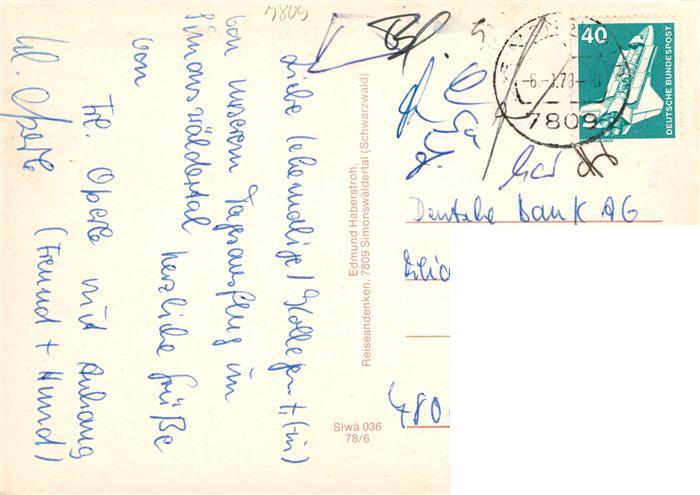 Liebe (ehemalige) Kollegen +,(in)
von unserem Tagesausflug im
Simonswäldertal herzliche Grüße
von
Fr. Opel mit Anhang
(Freund + Hund)
Edmund Haberstroh,
Reiseandenken, 7809 Simonswäldertal (Schwarzwald)
Siwä 036
78/6
40
DEUTSCHE BUNDESPOST
7809
Deutsche Bank AG
Filia
480
7809